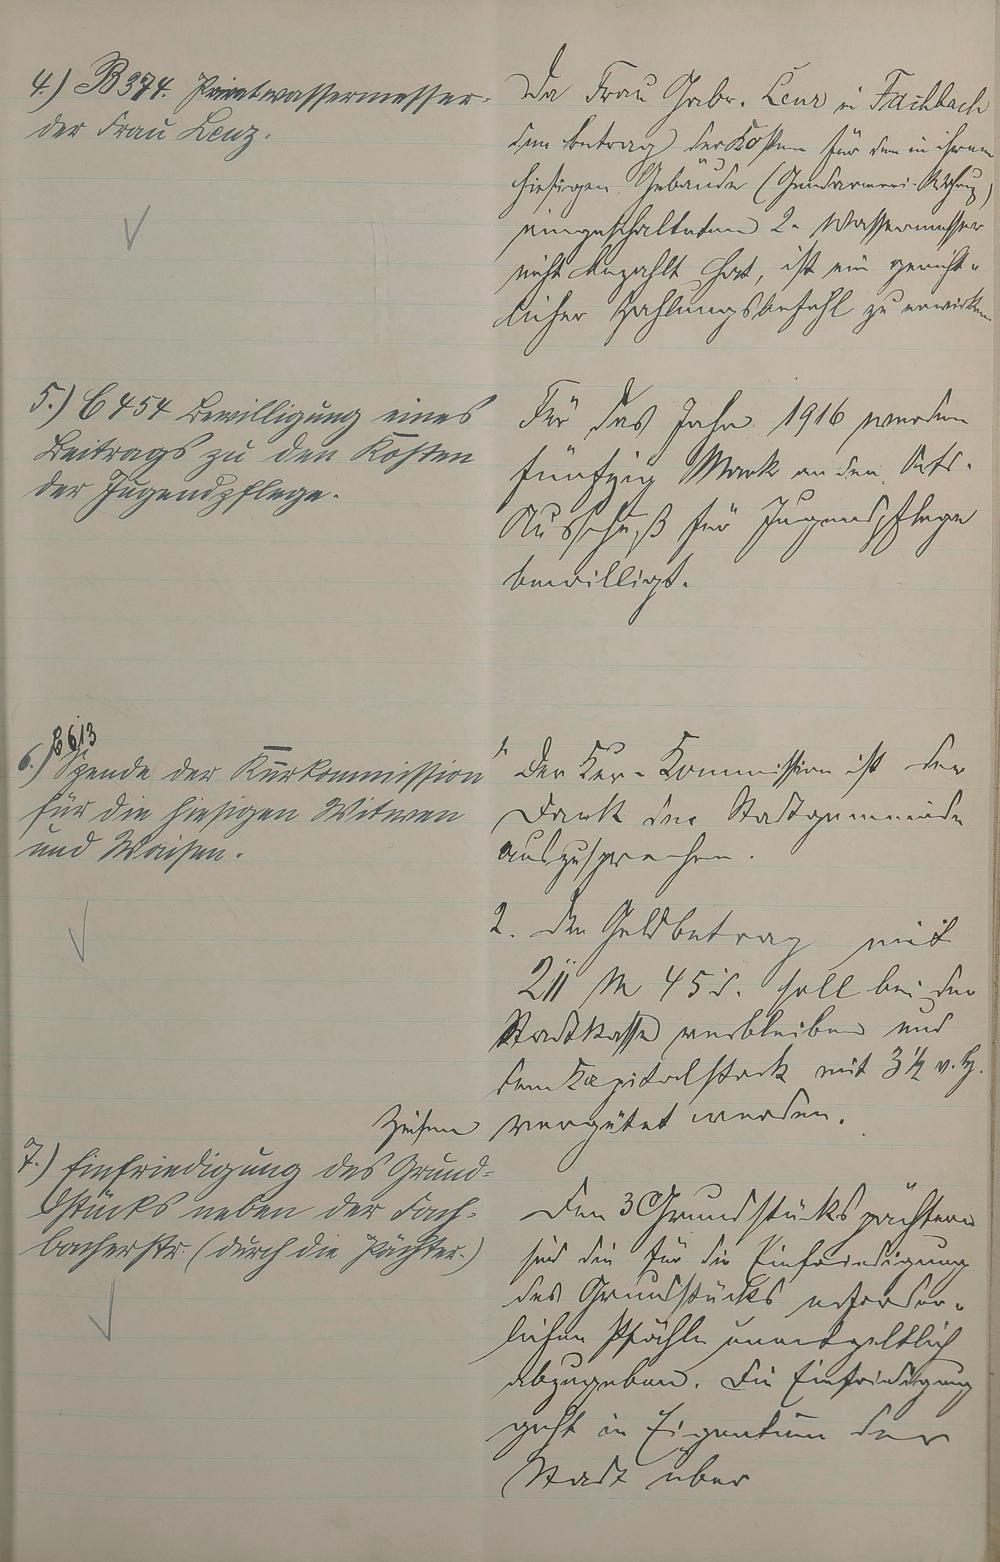 4.) B 374. Privatwassermesser-
der Frau Lenz.
Da Frau Gabr. Lenz in Fachbach
den Betrag der Kosten für den in ihrem
hiesigen Gebäude (Gendarmerie-Wohnung)
eingeschalteten 2. Wassermesser
nicht bezahlt hat, ist ein gericht-
licher Zahlungsbefehl zu erwirken.
5.) C 454 Bewilligung eines
Beitrags zu den Kosten
der Jugendpflege.
Für das Jahr 1916 werden
fünfzig Mark an den Orts-
Ausschuß für Jugendpflege
bewilligt.
6.) C 613
Spende der Kurkommission
für die hiesigen Witwen
und Waisen.
1. Der Kur-Kommission ist der
Dank der Stadtgemeinde
auszusprechen.
2. Der Geldbetrag mit
211 M 45 d. soll bei der
Stadtkasse verbleiben und
dem Kapitalstock mit 3½ v. H.
Zinsen vergütet werden.
7.) Einfriedigung des Grund-
stücks neben der Fach-
bacherstr. (durch die Pächter.)
Den 3 Grundstückspächtern
sind die für die Einfriedigung
des Grundstücks erforder-
lichen Pfähle unentgeltlich
abzugeben. Die Einfriedigung
geht in Eigentum der
Stadt über